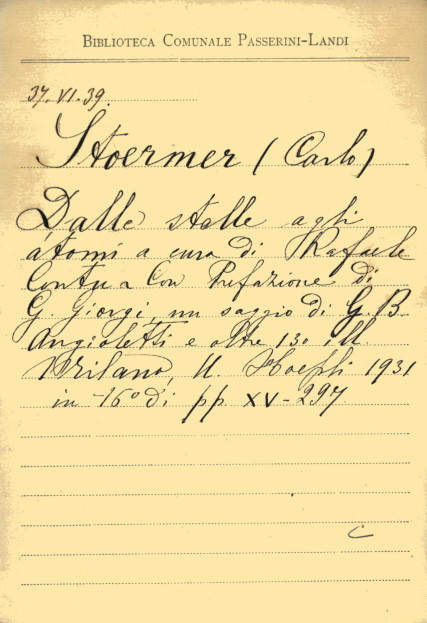 BIBLIOTECA COMUNALE PASSERINI-LANDI
37.VI.39.
Stoermer (Carlo)
Dalle stelle agli
atomi a cura di Rafaele
Contu Con Prefazione di
G. Giorgi, un saggio di G. B.
Angioletti e oltre 130 ill.
Milano, U. Hoepli 1931
in-16º di pp XV-297
C